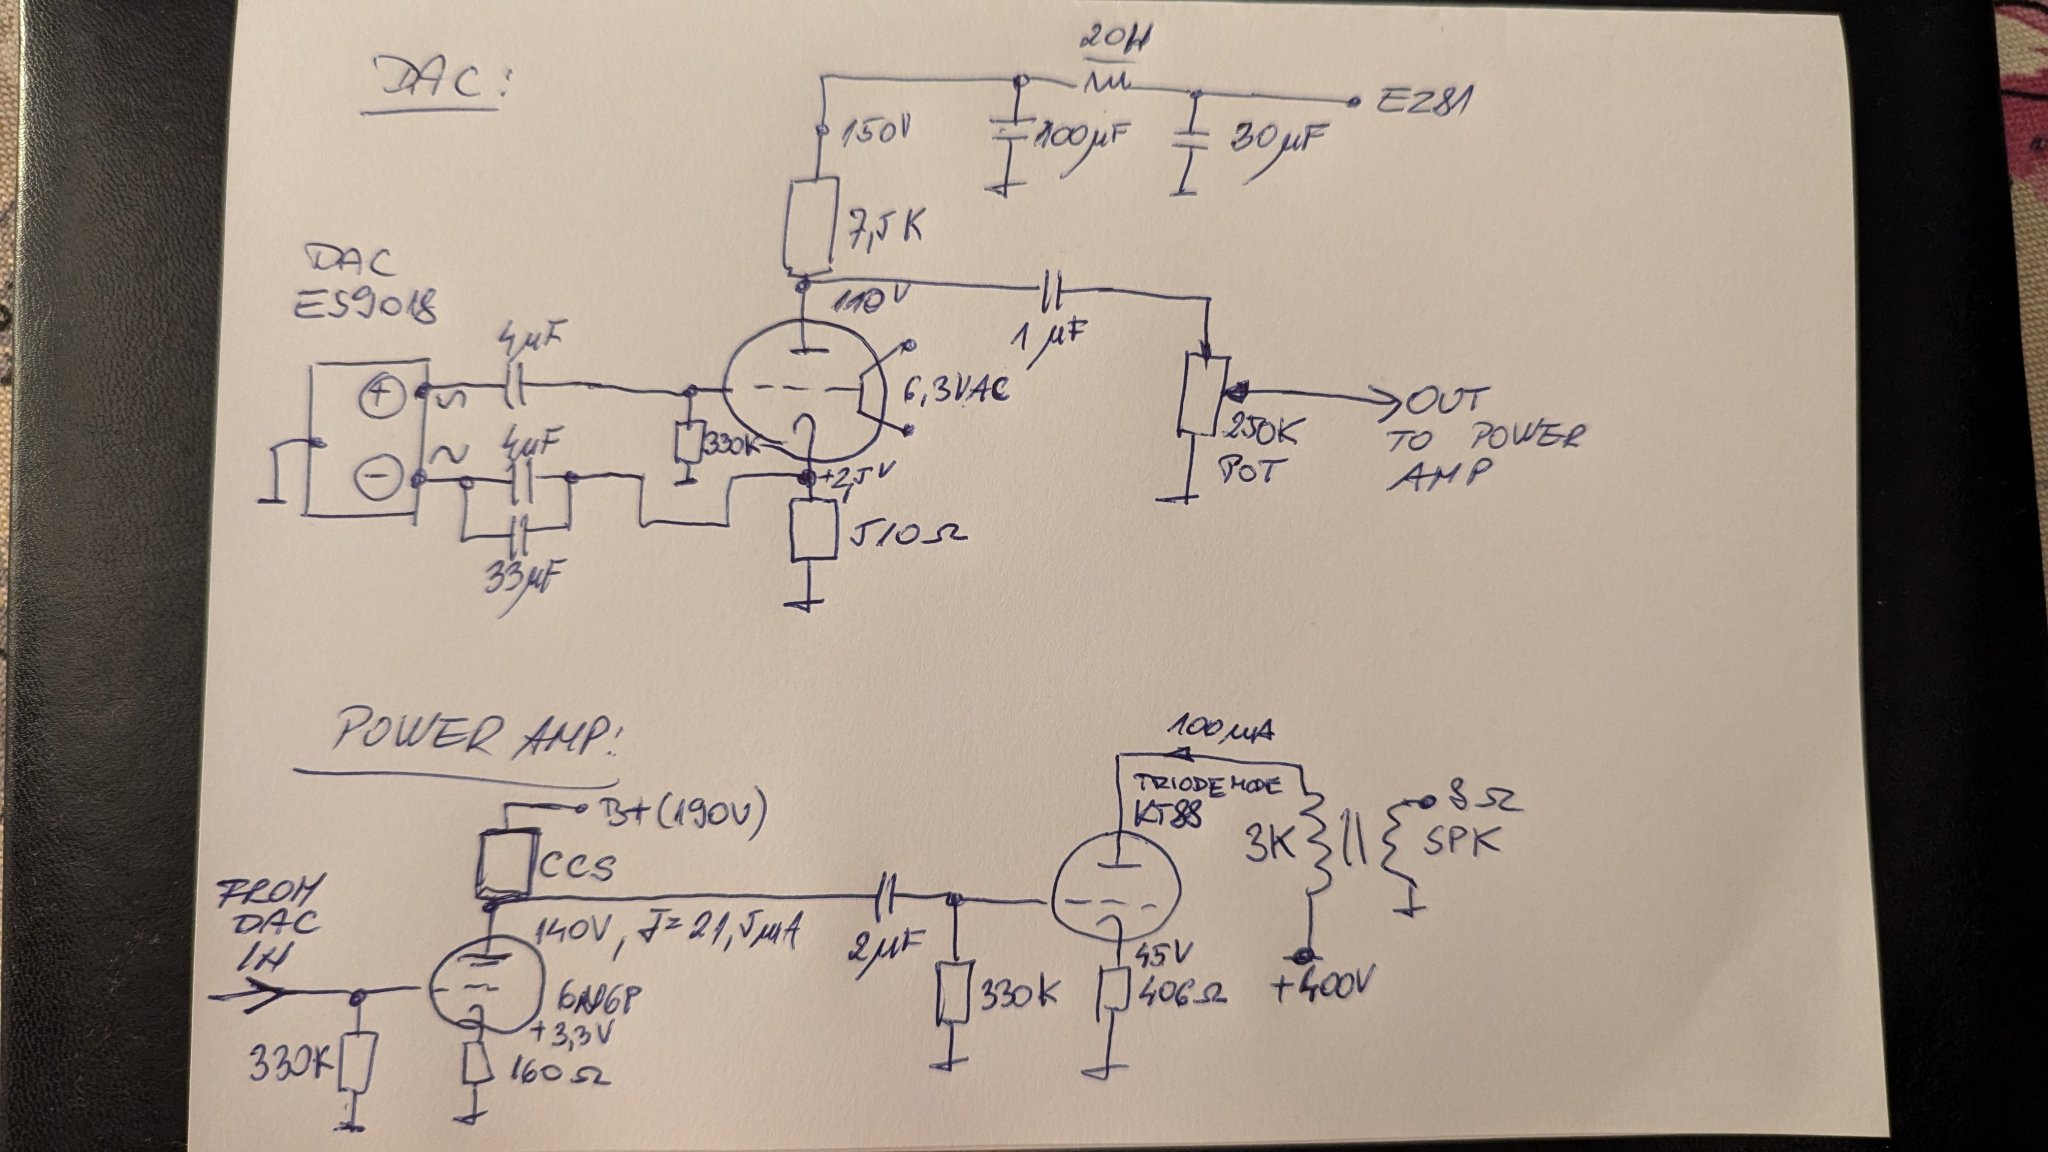 DAC:
20H
EZ81
150V
100µF
30µF
7,5K
DAC
ES9018
110V
4µF
1µF
+
~
6,3VAC
OUT
TO POWER
AMP
250K
POT
330K
4µF
~
−
+2,5V
510Ω
33µF
POWER AMP:
100mA
TRIODE MODE
KT88
B+(190V)
8Ω
SPK
3K
CCS
FROM
DAC
IN
140V, I=21,5mA
2µF
45V
406Ω
+400V
330K
+3,3V
160Ω
330K